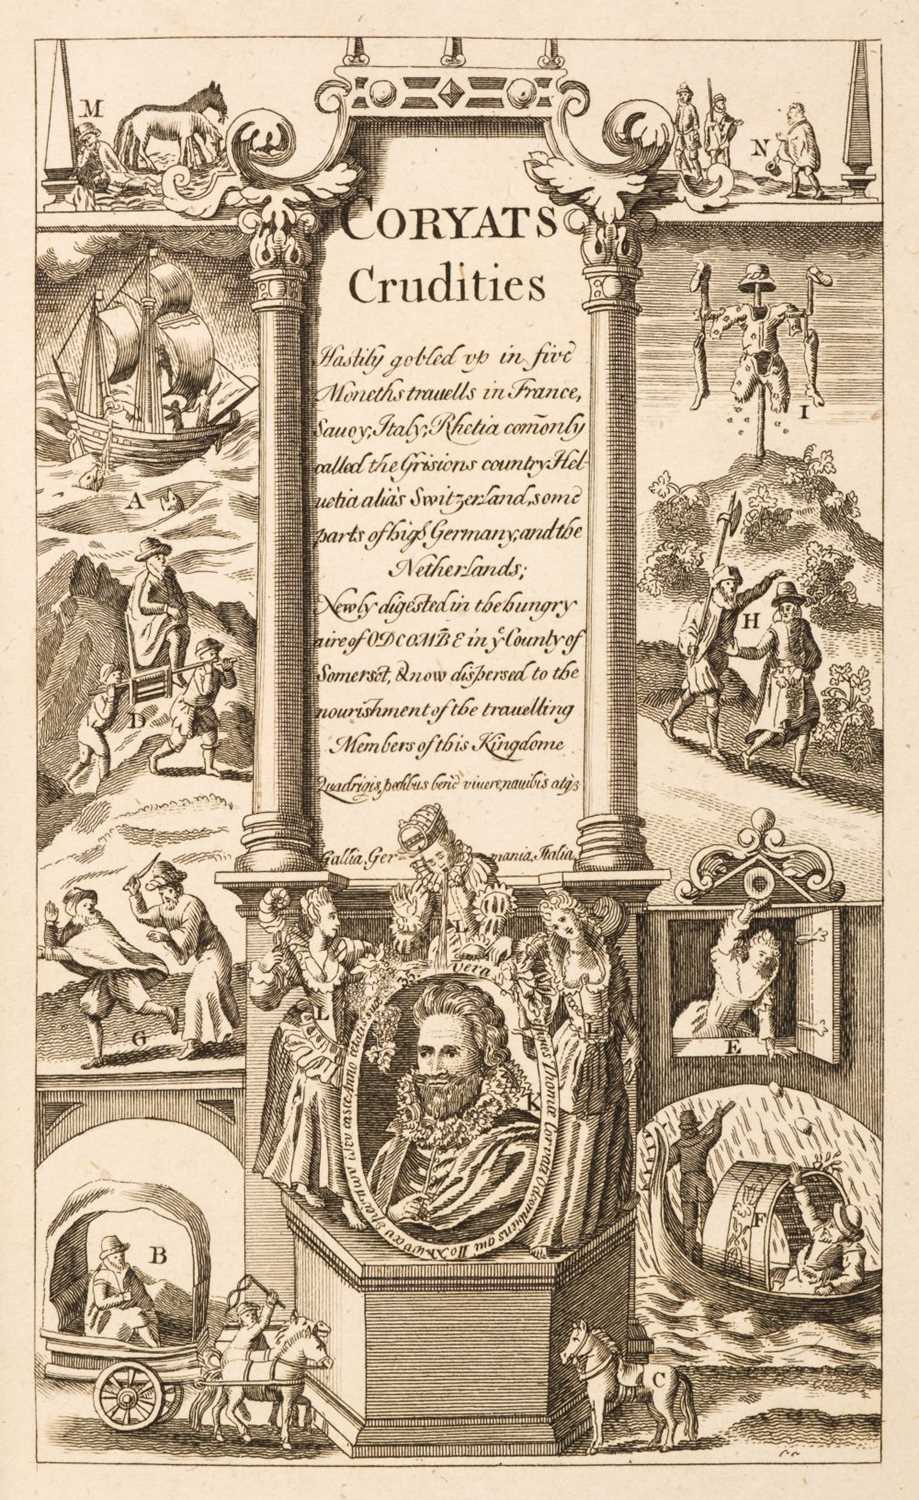 M
N
CORYATS
Crudities
Hastily gobled vp in five
Moneths trauells in France,
Sauoy, Italy, Rhetia com̄only
called the Grisions country, Hel-
uetia aliàs Switzerland, some
parts of high Germany, and the
Netherlands;
Newly digested in the hungry
aire of ODCOMBE in yᵉ County of
Somerset, & now dispersed to the
nourishment of the trauelling
Members of this Kingdome
Quadrigis, pedibus bene viuere, nauibus atq3
Gallia, Ger- mania, Italia
A
I
D
H
G
E
L
L
L
K
vera
Thomæ Coryati Odcombiensis qui
B
F
C